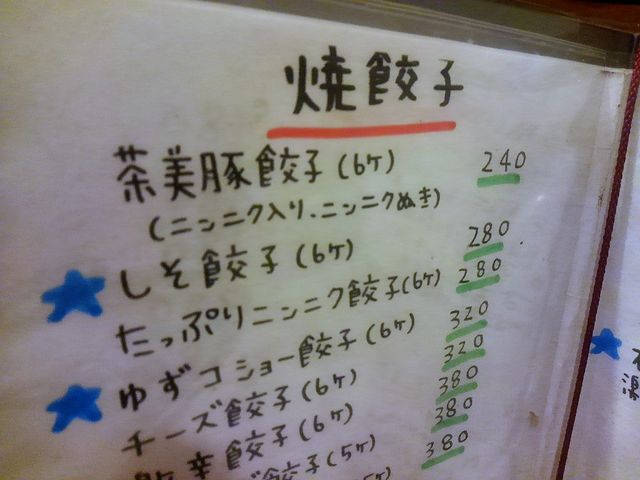 焼餃子
茶美豚餃子(6ケ) 240
(ニンニク入り、ニンニクぬき)
しそ餃子(6ケ) 280
たっぷりニンニク餃子(6ケ) 280
ゆずコショー餃子(6ケ) 320
チーズ餃子(6ケ) 320
辛餃子(6ケ) 380
餃子(5ケ) 380
380